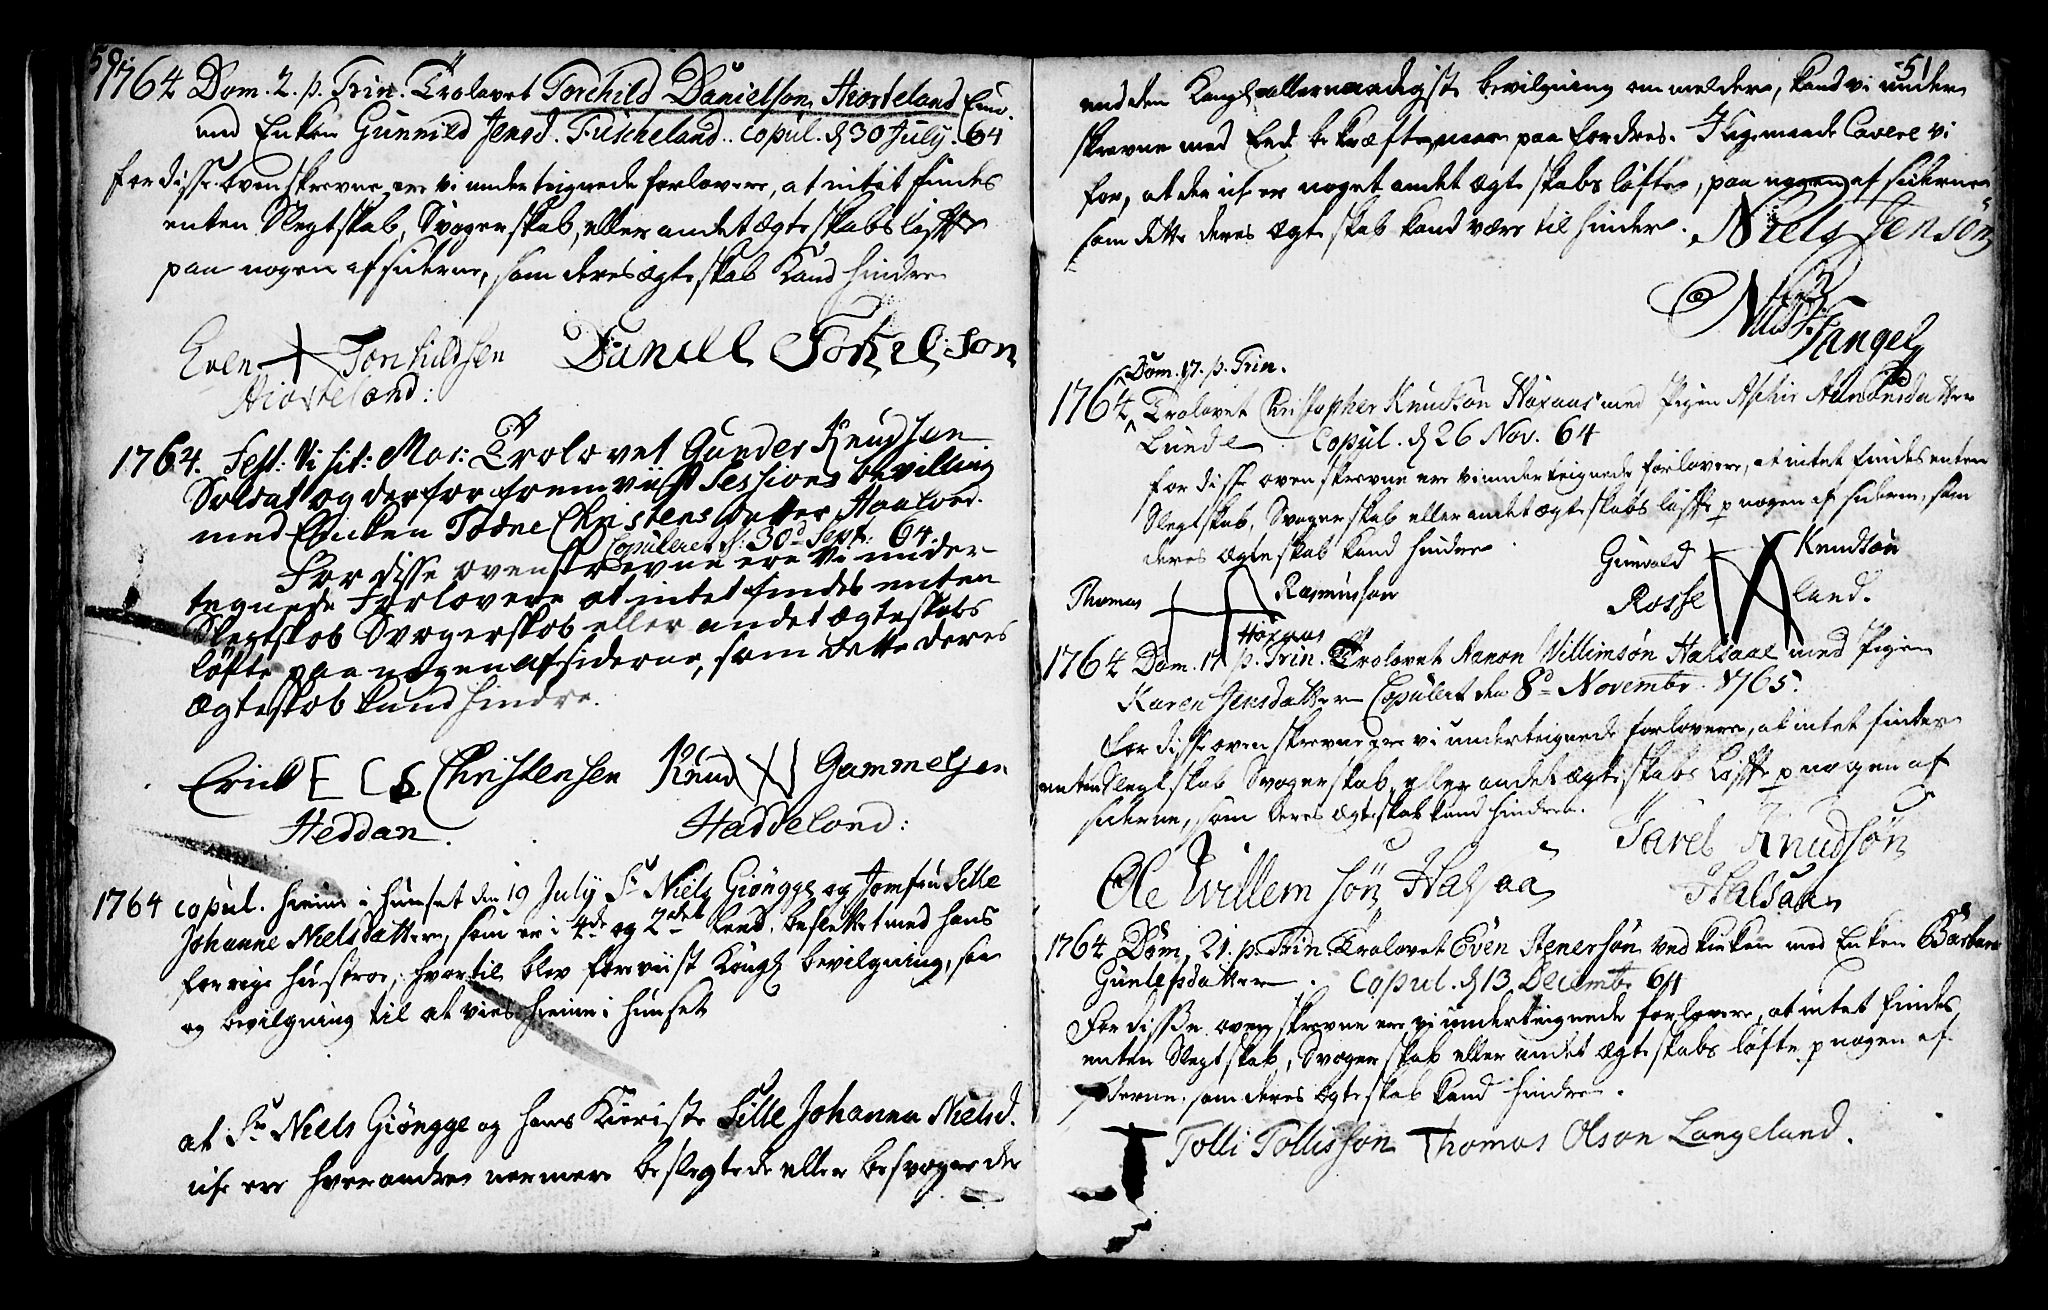 50.
1764 Dom. 2. p. Trin. Trolovet Torchild Danielson Hiorteland Enm.
med Enken Gunnild Jensd. Fuscheland. copul. d 30 July. 64
for disse ovenskrevne, ere vi underteignede forlovere, at intet findes
enten Slegtskab, Svogerskab, eller andet ægteskabs løffte
paa nogen af siderne, som deres ægteskab Kand hindre
Even Torkildsen Daniell Torkelson
Hiorteland:
1764. Fest: Visit: Mar: Trolovet Gunder Knudsen
Soldat og derfor fremviist Sessions bevilling
med Encken Todne Christensdatter Haaland.
Copuleret d: 30d Sept: 64.
For disse ovenskrevne ere vi under
tegnede Forlovere at intet findes enten
Slegtskob Svogerskob eller andet ægteskabs
løfte paa nogen af siderne, som dette deres
ægteskob kund hindre.
Erick E C S Christensen Knud Gammelsen
Heddan. Haddeland:
1764 copul. hieme i huuset den 19 July Sr Niels Giøngge og Jomfru Sille
Johanne Nielsdatter, som er i 4de og 2det Leed beslegtet med hans
forrige hustroe, hvortil blev forviist Kongl bevilgning, saa
og bevilgning til at vies hieme i huuset
at Sr Niels Giøngge og hans Kieriste Sille Johanna Nielsd.
icke ere hverandre nermere beslegtede eller besvogrede
51
end den Kongl allernaadigste bevilgning om melder, kand vi under
skrevne med Eed bekræfte, naar paa fordres. Ligemaade Cavere vi
for, at der icke er noget andet ægteskabs løfte, paa nogen af siderne
som dette deres ægteskab kand være til hinder. Niels Jensøn
Niels Tangel
Dom. 17. p. Trin.
1764 Trolovet Christopher Knudsøn Høxaas med Pigen Aschie Amundsdatter
Lunde Copul. d 26 Nov. 64
for disse ovenskrevne ere vi underteignede forlovere, at intet findes enten
Slegtskab, Svogerskab eller andet ægteskabs løffte p nogen af siderne, som
deres ægteskab kand hindre.
Thomas Rasmusson Gunvald Knudsøn
Høxaas Rosseland.
1764 Dom. 17 p. Trin. Trolovet Aanon Willimsøn Halsaae med Pigen
Karen Jensdatter Copulert den 8d Novembr. 1765.
for disse ovenskrevne ere vi underteignede forlovere, at intet findes
enten Slegtskab Svogerskab, eller andet ægteskabs Løffte p nogen af
siderne, som deres ægteskab kand hindre.
Ole Willemsøn Halsaa Tarel Knudsøn
Halsaa
1764 Dom. 21. p. Trin. Trolovet Even Stenersøn Vedkiecken med Enken Barbara
Gunlepsdatter. copul. d 13 Decembr 64
for disse ovenskrevne ere vi underteignede forlovere, at intet findes
enten Slegtskab, Svogerskab eller andet ægteskabs løfte p nogen af
siderne. som deres ægteskab kand hindre.
Tolli Tollisson Thomas Olson Langeland.